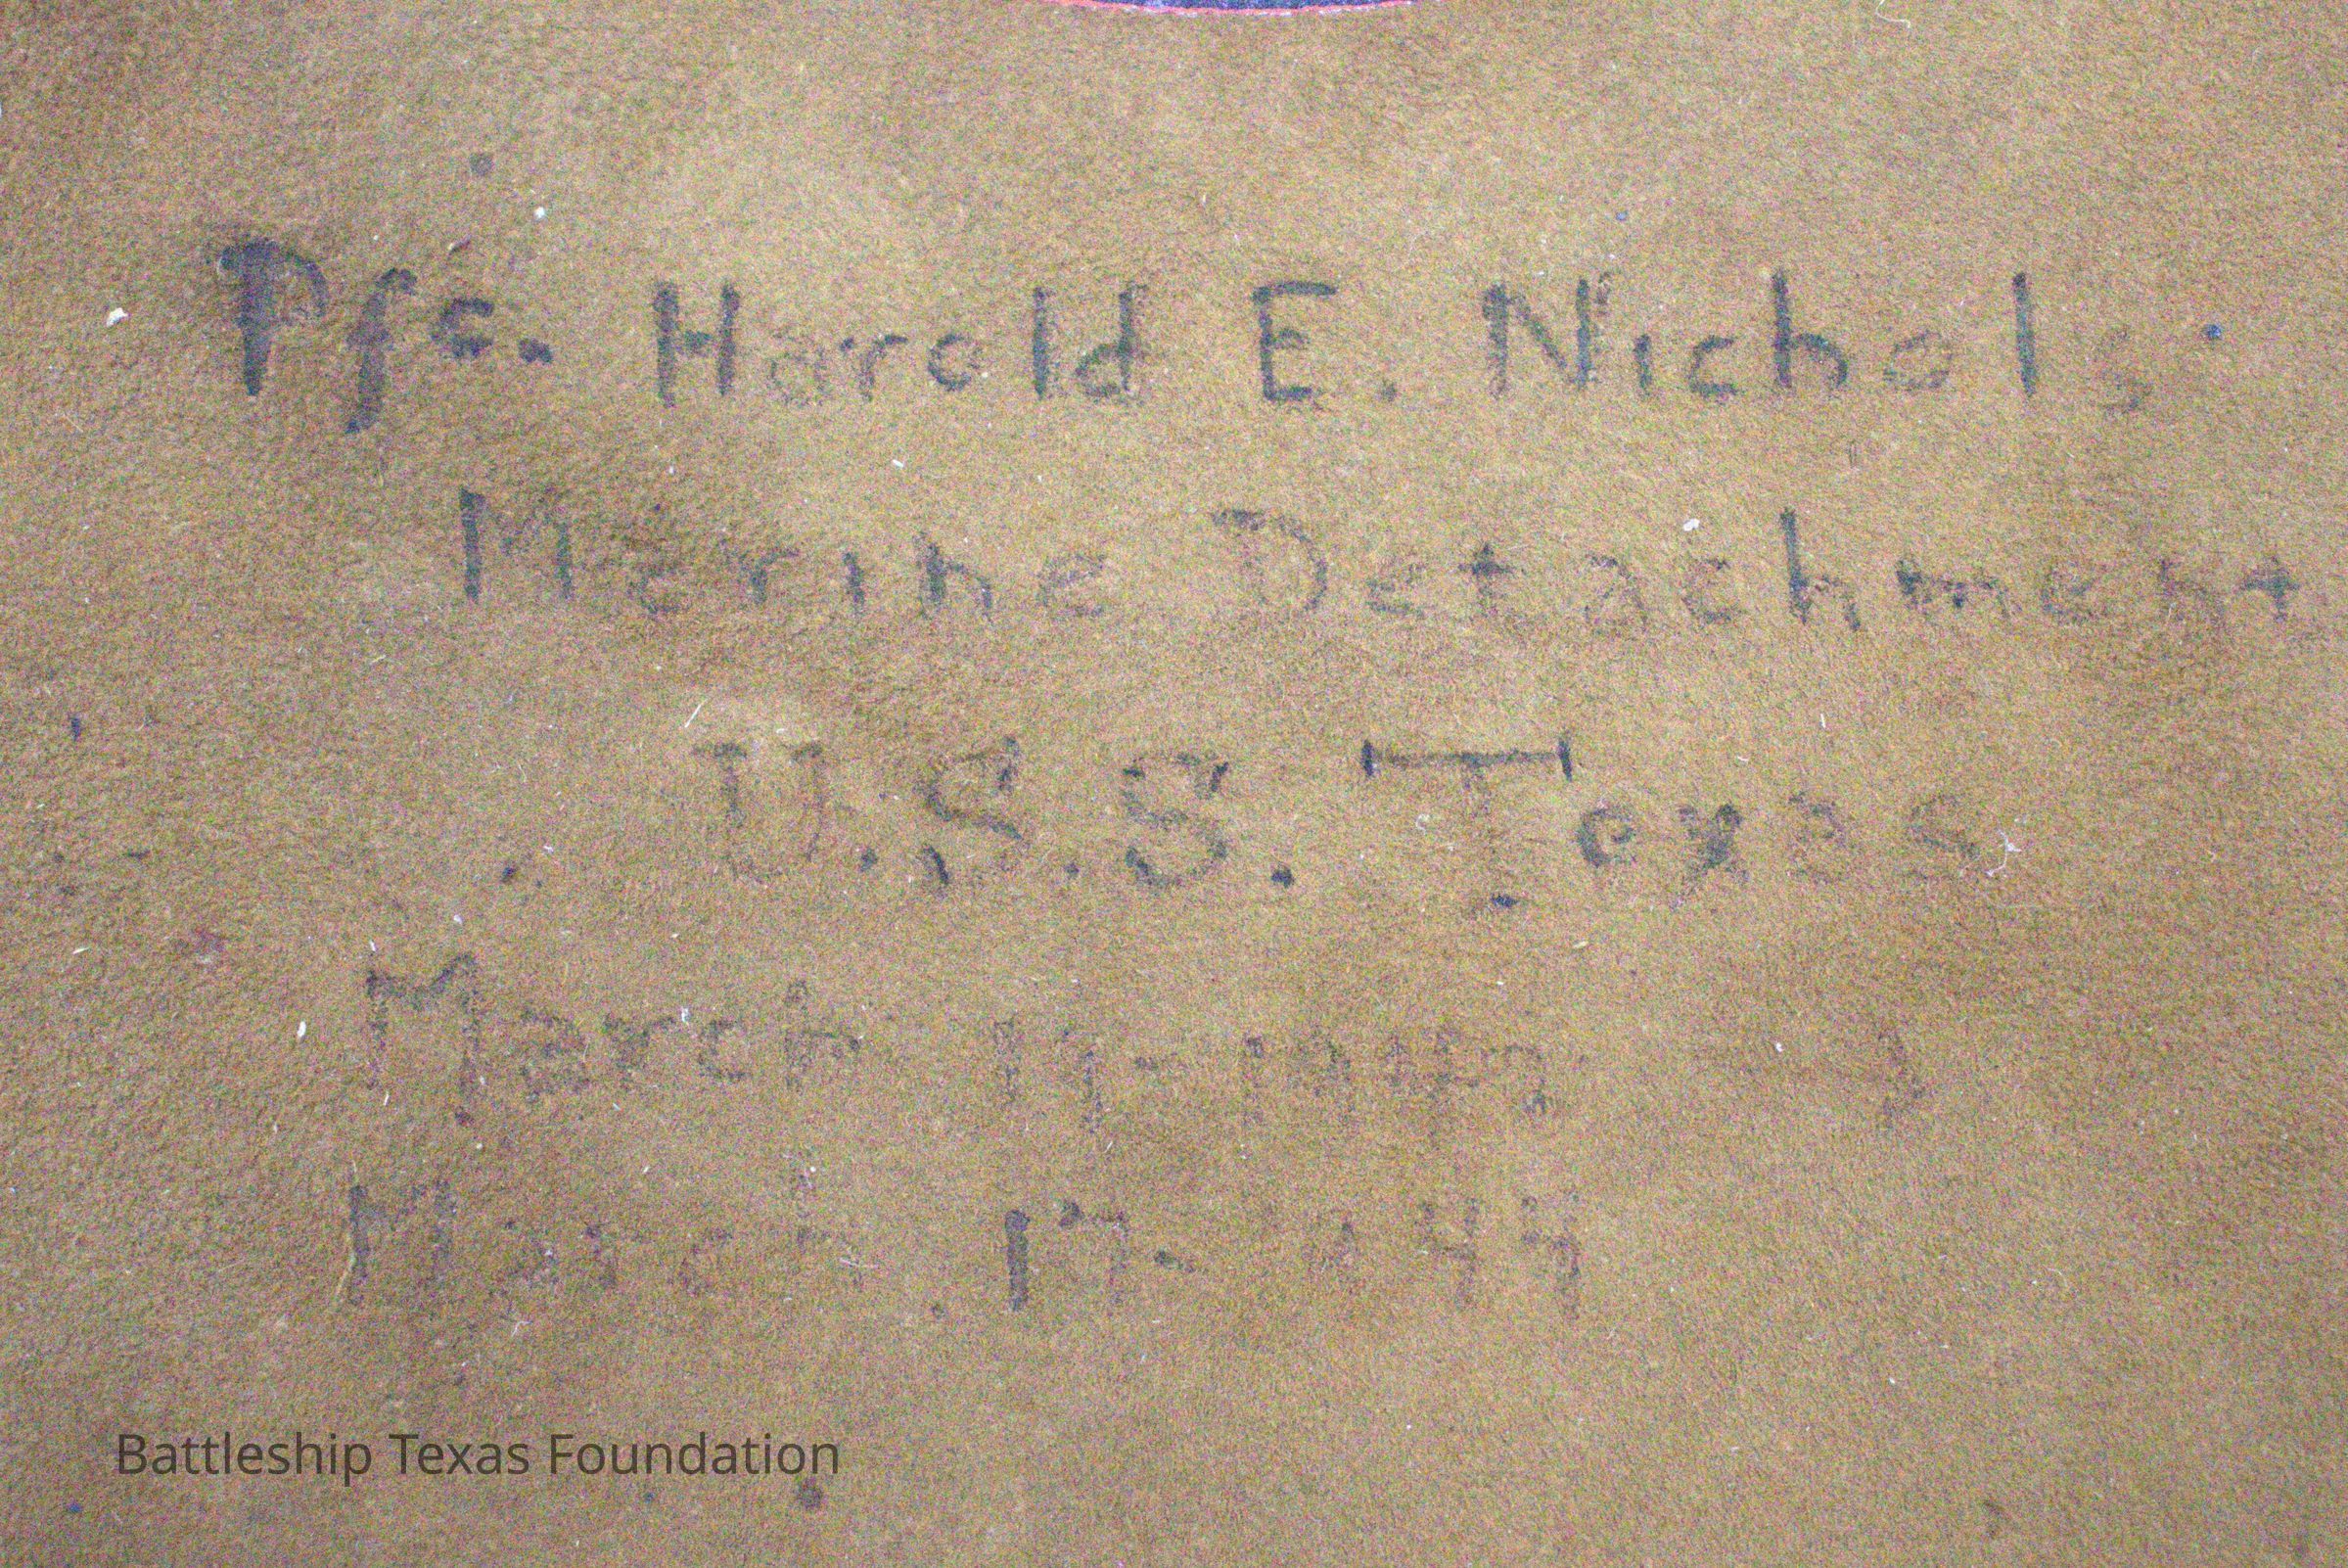 Pfc. Harold E. Nichols
Marine Detachment
U.S.S. Texas
March 17-
March 17- 1944
Battleship Texas Foundation